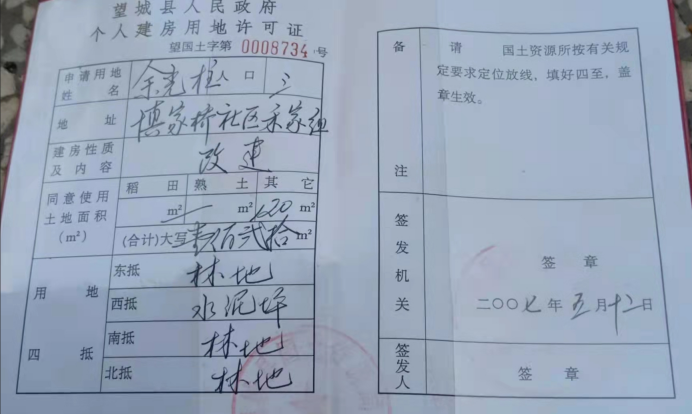 望城县人民政府
个人建房用地许可证
望国土字第 0008734 号
申请用地姓名 余 柱 人口 三
地址 博家桥社区余家组
建房性质及内容 改建
同意使用土地面积(m²) 稻田 熟土 其它
m² — m² 120 m²
(合计)大写 壹佰贰拾 m²
用地四抵
东抵 林地
西抵 水泥坪
南抵 林地
北抵 林地
备注
请 国土资源所按有关规
定要求定位放线，填好四至，盖
章生效。
签发机关
签 章
二〇〇七年五月十二日
签发人 签 章